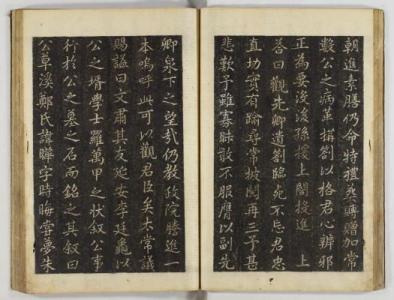 朝進素膳仍命特禮葬賻贈加常
數公之病革猶劄以格君心辨邪
正為要浚浚孫援上閤投進上
答曰觀先卿遺劄臨死不忘君忠
直切實有踰尋常披閱再三予甚
悲歎予雖寡昧敢不服膺以副先
卿泉下之望哉仍教政院謄進一
本嗚呼此可以觀君臣矣太常議
賜謚曰文肅其友延安李廷龜以
公之壻學士羅萬甲之狀叙公事
行於公之墓之石而銘之其叙曰
公草溪鄭氏諱曄字時晦嘗夢朱